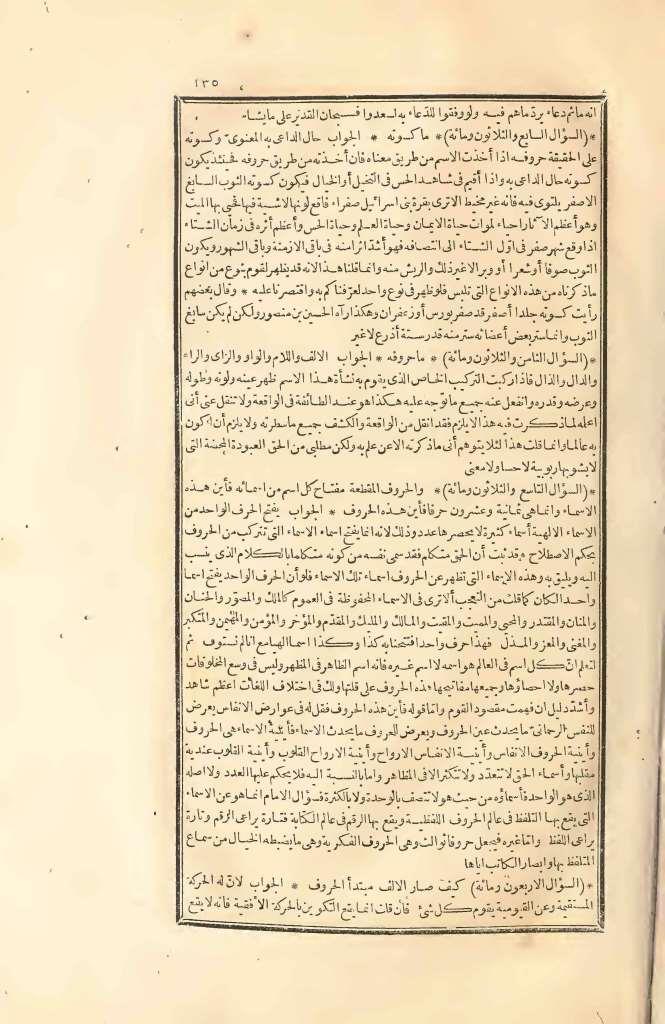 ١٣٥
انه ما ثم دعاء يرد ما هم فيه ولو وفقوا للدعاء به لسعدوا فسبحان القدير على ما يشاء
*(السؤال السابع والثلاثون ومائة)* ما كسوته * الجواب حال الداعى به المعنوى وكسوته
على الحقيقة حروفه اذا أخذت الاسم من طريق معناه فان أخذته من طريق حروفه فحينئذ يكون
كسوته حال الداعى به واذا أقيم فى شاهد الحس فى التخيل أو الخيال فيكون كسوته الثوب السابغ
الاصفر يلتوى فيه فانه غير مخيط الاترى بقرة بنى اسرائيل صفراء فاقع لونها لاشية فيها فحيى بها الميت
وهو أعظم الآثار احياء لموات حياة الايمان وحياة العلم وحياة الحس وأعظم أثره فى زمان الشتاء
اذا وقع شهر صفر فى اول الشتاء الى انتصافه فهو أشد اثرا منه فى باقى الازمنة وباقى الشهور ويكون
الثوب صوفا أو شعرا أو وبرا لا غير ذلك والريش منه وانما قلنا هذا لانه قد يظهر لقوم بنوع من انواع
ما ذكرناه من هذه الانواع التى تلبس فلو ظهر فى نوع واحد لعرّفناكم به واقتصرنا عليه * وقال بعضهم
رأيت كسوته جلدا أصفر قد صفر بورس أو زعفران وهكذا رآه الحسين بن منصور ولكن لم يكن سابغ
الثوب وانما ستر بعض أعضائه ستر منه قدر ستة أذرع لا غير
*(السؤال الثامن والثلاثون ومائة)* ما حروفه * الجواب الالف واللام والواو والزاى والراء
والدال والذال فاذا ركبت التركيب الخاص الذى يقوم به نشأة هذا الاسم ظهر عينه ولونه وطوله
وعرضه وقدره وانفعل عنه جميع ما توجه عليه هكذا هو عند الطائفة فى الواقعة ولا تنقل عنى أنى
اعلمه لما ذكرت فيه هذا لا يلزم فقد انقل من الواقعة والكشف جميع ما سطرته ولا يلزم أن أكون
به عالما وانما قلت هذا لئلا يتوهم أنى ما ذكرته الا عن علم به ولكن مطلبى من الحق العبودة المحضة التى
لا يشوبها ربوبية لا حسا ولا معنى
*(السؤال التاسع والثلاثون ومائة)* والحروف المقطعة مفتاح كل اسم من اسمائه فأين هذه
الاسماء وانما هى ثمانية وعشرون حرفا فأين هذه الحروف * الجواب يفتح الحرف الواحد من
الاسماء الالهية أسماء كثيرة لا يحصرها عدد وذلك لانه انما يفتح اسماء الاسماء التى تتركب من الحروف
بحكم الاصطلاح وقد ثبت أن الحق متكلم فقد سمى نفسه من كونه متكلما بالكلام الذى ينسب
اليه ويليق به وهذه الاسماء التى تظهر عن الحروف اسماء تلك الاسماء فلو أن الحرف الواحد يفتح اسما
واحدا لكان كما قلت من التعجب ألا ترى فى الاسماء المحفوظة فى العموم كالملك والمصوّر والحنان
والمنان والمقتدر والمحيى والمميت والمقيت والمالك والمليك والمقدّم والمؤخر والمؤمن والمهيمن والمتكبر
والمغنى والمعز والمذل فهذا حرف واحد افتتحنا به كذا وكذا اسما الهيا مع انا لم نستوف ثم
لتعلم انّ كل اسم فى العالم هو اسمه لا اسم غيره فانه اسم الظاهر فى المظهر وليس فى وسع المخلوقات
حصرها ولا احصاؤها وجميعها مفاتيحها هذه الحروف على قلتها ولك فى اختلاف اللغات اعظم شاهد
وأشدّ دليل ان فهمت مقصود القوم واما قوله فأين هذه الحروف فقل له فى عوارض الانفاس يعرض
للنفس الرحمانى ما يحدث عين الحروف ويعرض للحروف ما يحدث الاسماء فأينية الاسماء هى الحروف
وأينية الحروف الانفاس وأينية الانفاس الارواح وأينية الارواح القلوب وأينية القلوب عندية
مقلبها وأسماء الحق لا تتعدّد ولا تتكثر الا فى المظاهر واما بالنسبة اليه فلا يحكم عليها العدد ولا اصله
الذى هو الواحد فأسماؤه من حيث هو لا تتصف بالوحدة ولا بالكثرة فسؤال الامام انما هو عن الاسماء
التى يقع بها التلفظ فى عالم الحروف اللفظية ويقع بها الرقم فى عالم الكتابة فتارة يراعى الرقم وتارة
يراعى اللفظ واما غيره فيجعل حروفا ثوالث وهى الحروف الفكرية وهى ما يضبطه الخيال من سماع
المتلفظ بها وابصار الكاتب اياها
*(السؤال الاربعون ومائة)* كيف صار الالف مبتدأ الحروف * الجواب لانّ له الحركة
المستقيمة وعن القيومية يقوم كل شئ فان قلت انما يقع التكوين بالحركة الافقية فانه لا يقع